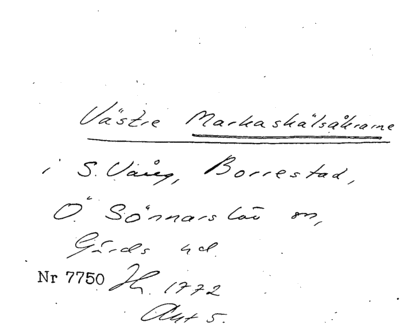 Västre Markaskälsåkrarne
i S. Vång, Borrestad,
Ö. Sönnarslöv sn,
Gärds hd.
Nr 7750 Jh. 1772
Akt 5.